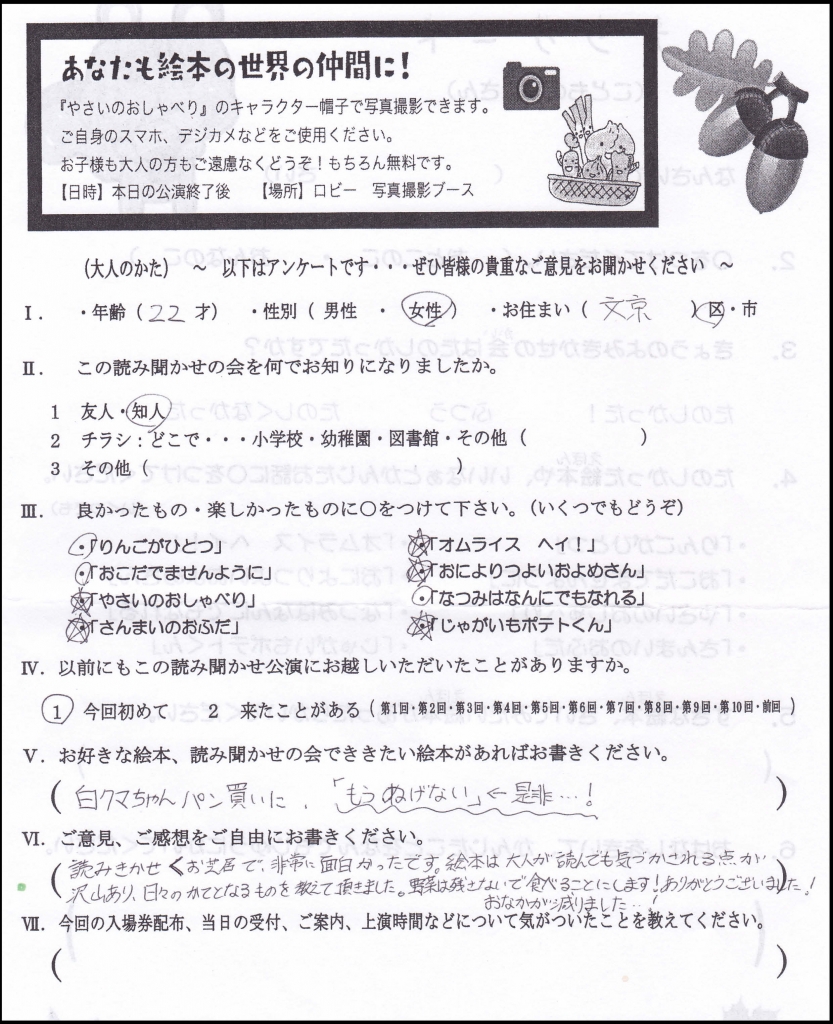 あなたも絵本の世界の仲間に！
『やさいのおしゃべり』のキャラクター帽子で写真撮影できます。
ご自身のスマホ、デジカメなどをご使用ください。
お子様も大人の方もご遠慮なくどうぞ！もちろん無料です。
【日時】本日の公演終了後　【場所】ロビー　写真撮影ブース
(大人のかた)　～　以下はアンケートです・・・ぜひ皆様の貴重なご意見をお聞かせください　～
Ⅰ．・年齢（22才）・性別（男性・女性）・お住まい（文京）区・市
Ⅱ．この読み聞かせの会を何でお知りになりましたか。
1 友人・知人
2 チラシ：どこで・・・小学校・幼稚園・図書館・その他（　）
3 その他（　）
Ⅲ．良かったもの・楽しかったものに〇をつけて下さい。（いくつでもどうぞ）
・「りんごがひとつ」　・「オムライス　ヘイ！」
・「おこだでませんように」　・「おによりつよいおよめさん」
・「やさいのおしゃべり」　・「なつみはなんにでもなれる」
・「さんまいのおふだ」　・「じゃがいもポテトくん」
Ⅳ．以前にもこの読み聞かせ公演にお越しいただいたことがありますか。
1 今回初めて　2 来たことがある（第1回・第2回・第3回・第4回・第5回・第6回・第7回・第8回・第9回・第10回・前回）
Ⅴ．お好きな絵本、読み聞かせの会でききたい絵本があればお書きください。
（白クマちゃんパン買いに、「もうぬげない」←是非…！）
Ⅵ．ご意見、ご感想をご自由にお書きください。
（読みきかせ＜お芝居で、非常に面白かったです。絵本は大人が読んでも気づかされる点が
沢山あり、日々のかてとなるものを教えて頂きました。野菜は残さないで食べることにします！ありがとうございました！）
おなかが減りました…！
Ⅶ．今回の入場券配布、当日の受付、ご案内、上演時間などについて気がついたことを教えてください。
（　）